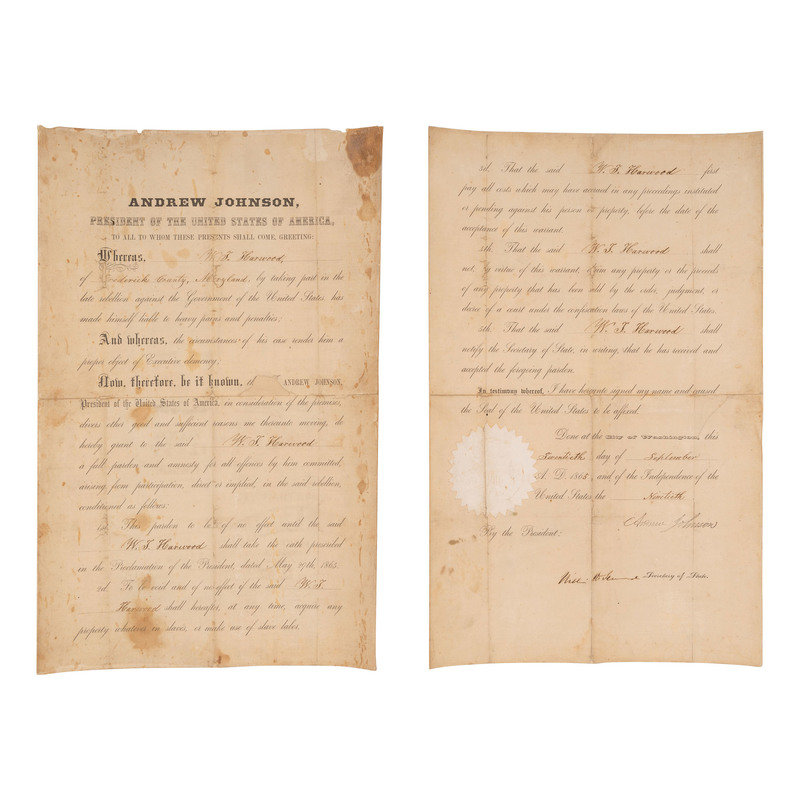 ANDREW JOHNSON,
PRESIDENT OF THE UNITED STATES OF AMERICA,
TO ALL TO WHOM THESE PRESENTS SHALL COME, GREETING:
Whereas, W. T. Harwood,
of Frederick County, Maryland, by taking part in the
late rebellion against the Government of the United States has
made himself liable to heavy pains and penalties;
And whereas, the circumstances of his case render him a
proper object of Executive clemency;
Now, therefore, be it known, th ANDREW JOHNSON,
President of the United States of America, in consideration of the premises,
divers other good and sufficient reasons me thereunto moving, do
hereby grant to the said W. T. Harwood
a full pardon and amnesty for all offences by him committed,
arising from participation, direct or implied, in the said rebellion,
conditioned as follows:
1st. This pardon to be of no effect until the said
W. T. Harwood shall take the oath prescribed
in the Proclamation of the President, dated May 29th, 1865.
2d. To be void and of no effect if the said W. T.
Harwood shall hereafter, at any time, acquire any
property whatever in slaves, or make use of slave labor.
3d. That the said W. T. Harwood first
pay all costs which may have accrued in any proceedings instituted
or pending against his person or property, before the date of the
acceptance of this warrant.
4th. That the said W. T. Harwood shall
not, by virtue of this warrant, claim any property or the proceeds
of any property that has been sold by the order, judgment, or
decree of a court under the confiscation laws of the United States.
5th. That the said W. T. Harwood shall
notify the Secretary of State, in writing, that he has received and
accepted the foregoing pardon.
In testimony whereof, I have hereunto signed my name and caused
the Seal of the United States to be affixed.
Done at the City of Washington, this
Twentieth day of September
A. D. 1865, and of the Independence of the
United States the Ninetieth
Andrew Johnson
By the President:
William H. Seward Secretary of State.